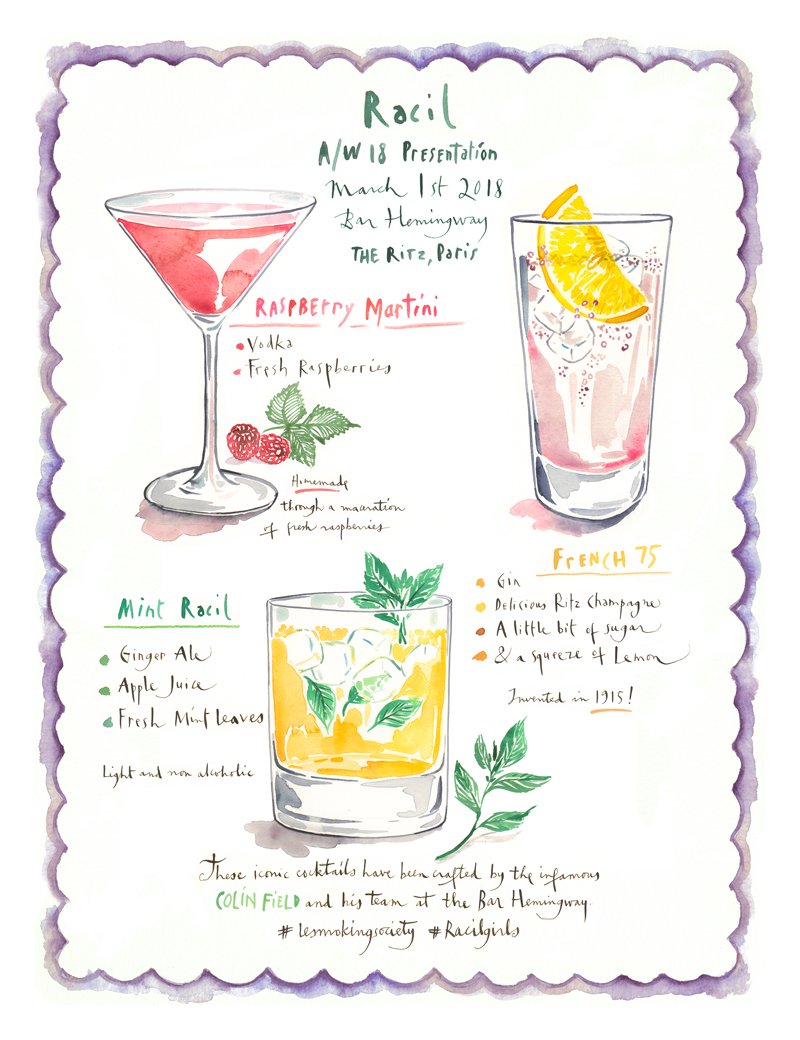 Racil
A/W 18 Presentation
March 1st 2018
Bar Hemingway
THE Ritz, Paris
RASPBERRY Martini
Vodka
Fresh Raspberries
Homemade
through a maceration
of fresh raspberries
FRENCH 75
Gin
Delicious Ritz Champagne
A little bit of sugar
& a squeeze of Lemon
Invented in 1915!
Mint Racil
Ginger Ale
Apple Juice
Fresh Mint leaves
Light and non alcoholic
These iconic cocktails have been crafted by the infamous
COLIN FIELD and his team at the Bar Hemingway.
# lesmokingsociety # Racilgirls